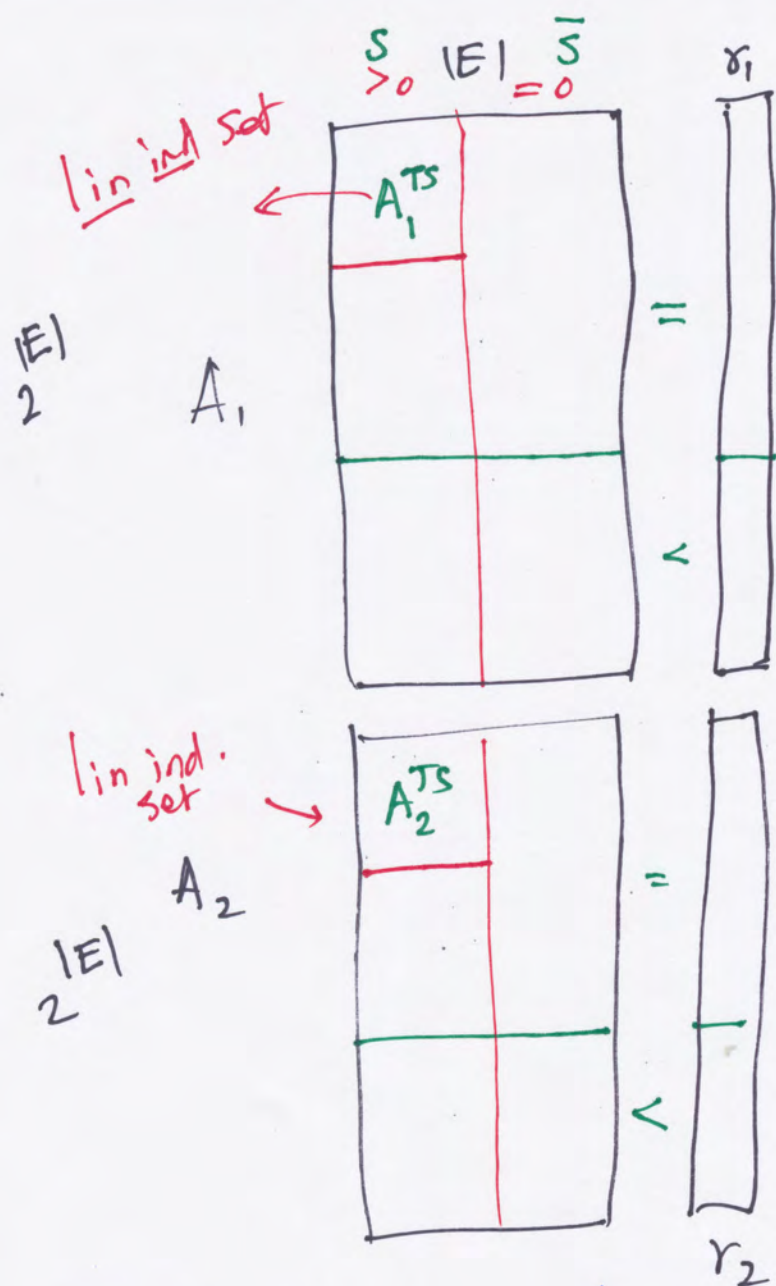 S |E| S̅ r₁
>0 =0
lin ind set
A₁ᵀˢ
=
2^|E| A₁
<
lin ind.
set
A₂ᵀˢ
A₂ =
2^|E|
<
r₂